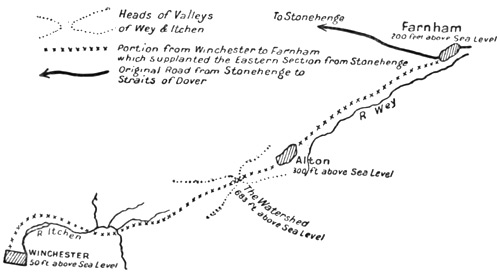 Heads of Valleys
of Wey & Itchen
Portion from Winchester to Farnham
which supplanted the Eastern Section from Stonehenge
Original Road from Stonehenge to
Straits of Dover
To Stonehenge
Farnham
200 feet above Sea Level
R Wey
Alton
300 ft above Sea Level
The Watershed
683 ft above Sea Level
R Itchen
WINCHESTER
50 ft above Sea Level